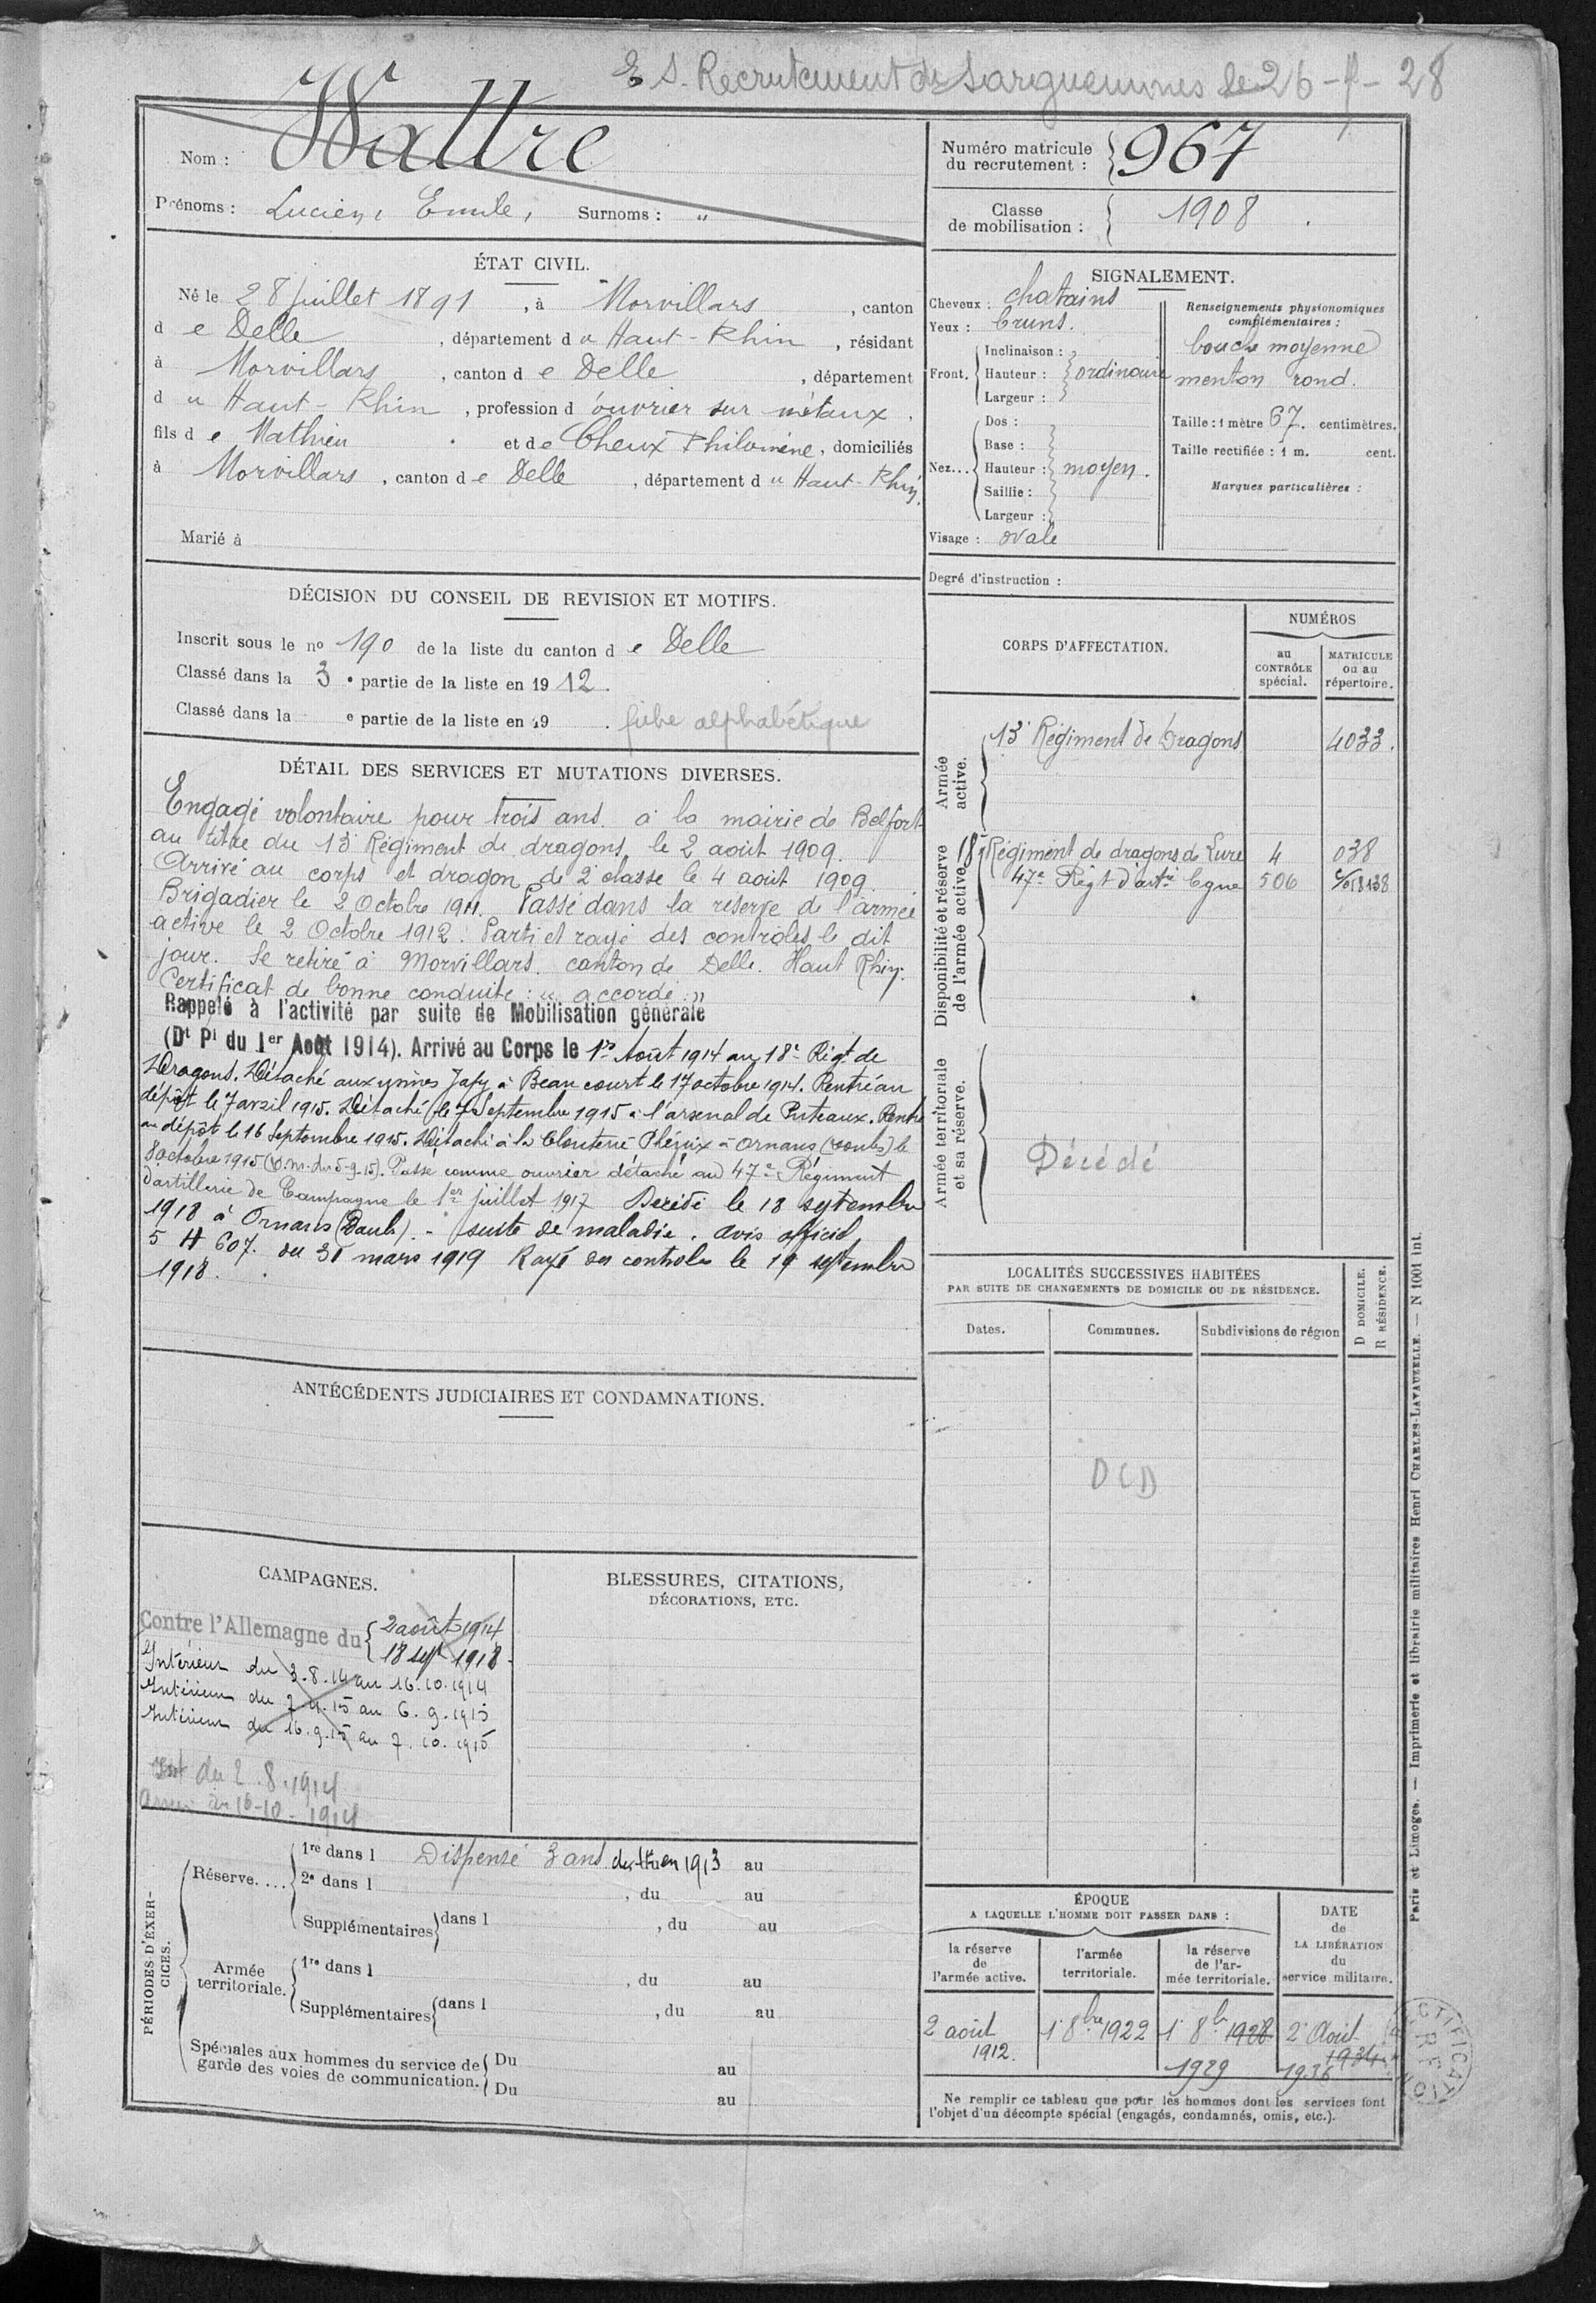 E S. Recrutement de Sarguemines le 26-9-28
Nom : Wattre
Prénoms : Lucien, Emile, Surnoms : "
Numéro matricule
du recrutement : 967
Classe
de mobilisation : 1908
ÉTAT CIVIL.
Né le 28 juillet 1891, à Morvillars, canton
d e Delle, département d u Haut-Rhin, résidant
à Morvillars, canton d e Delle, département
d u Haut-Rhin, profession d'ouvrier sur métaux,
fils d e Mathieu et de Cheux Philomène, domiciliés
à Morvillars, canton d e Delle, département d u Haut-Rhin.
Marié à
SIGNALEMENT.
Cheveux : chatains
Yeux : bruns.
Front. Inclinaison :
Hauteur : ordinaire
Largeur :
Nez... Dos :
Base :
Hauteur : moyen.
Saillie :
Largeur :
Visage : ovale
Renseignements physionomiques
complémentaires :
bouche moyenne
menton rond.
Taille : 1 mètre 67. centimètres.
Taille rectifiée : 1 m. cent.
Marques particulières :
Degré d'instruction :
DÉCISION DU CONSEIL DE REVISION ET MOTIFS.
Inscrit sous le nº 190 de la liste du canton d e Delle
Classé dans la 3e partie de la liste en 1912.
Classé dans la e partie de la liste en 19 . fiche alphabétique
DÉTAIL DES SERVICES ET MUTATIONS DIVERSES.
Engagé volontaire pour trois ans. à la mairie de Belfort
au titre du 13e Régiment de dragons, le 2 août 1909.
Arrivé au corps et dragon de 2e classe le 4 août 1909.
Brigadier le 2 Octobre 1911. Passé dans la réserve de l'armée
active le 2 Octobre 1912. Parti et rayé des controles le dit
jour. Se retire à Morvillars. canton de Delle. Haut Rhin.
Certificat de bonne conduite : "accordé."
Rappelé à l'activité par suite de Mobilisation générale
(Dt Pl du 1er Août 1914). Arrivé au Corps le 1er Août 1914 au 18e Régt de
Dragons. Détaché aux usines Japy à Beaucourt le 17 octobre 1914. Rentré au
dépôt le 7 avril 1915. Détaché le 7 Septembre 1915 à l'arsenal de Puteaux. Rentré
au dépôt le 16 Septembre 1915. Détaché à la Clouterie Phénix à Ornans (Doubs) le
8 octobre 1915 (D.M. du 5-9-15). Passé comme ouvrier détaché au 47e Régiment
d'artillerie de Campagne le 1er juillet 1917 Décédé le 18 septembre
1918 à Ornans (Doubs). - suite de maladie. avis officiel
5 H 607. du 31 mars 1919 Rayé des controles le 19 septembre
1918.
CORPS D'AFFECTATION.
NUMÉROS
au
CONTRÔLE
spécial.
MATRICULE
ou au
répertoire.
Armée
active.
13e Régiment de Dragons 4033.
Disponibilité et réserve
de l'armée active.
18e Régiment de dragons de Lure 4 038
47e Régt d'artie Cgne 506
Armée territoriale
et sa réserve.
Décédé
LOCALITÉS SUCCESSIVES HABITÉES
PAR SUITE DE CHANGEMENTS DE DOMICILE OU DE RÉSIDENCE.
Dates. Communes. Subdivisions de région
D DOMICILE.
R RÉSIDENCE.
DCD
ANTÉCÉDENTS JUDICIAIRES ET CONDAMNATIONS.
CAMPAGNES.
Contre l'Allemagne du 2 août 1914
18 sept 1918.
Intérieur du 3.8.14 au 16.10.1914
Intérieur du 7.4.15 au 6.9.1915
Intérieur du 16.9.15 au 7.10.1915
Int du 2.8.1914
au 16-10-1914
BLESSURES, CITATIONS,
DÉCORATIONS, ETC.
PÉRIODES D'EXER-
CICES.
Réserve.... 1re dans l Dispensé 3 ans en 1913 au
2e dans l , du au
Supplémentaires dans l , du au
Armée
territoriale. 1re dans l , du au
Supplémentaires dans l , du au
Spéciales aux hommes du service de
garde des voies de communication. Du au
Du au
ÉPOQUE
A LAQUELLE L'HOMME DOIT PASSER DANS :
la réserve
de
l'armée active.
l'armée
territoriale.
la réserve
de l'ar-
mée territoriale.
DATE
de
LA LIBÉRATION
du
service militaire.
2 août
1912.
1er 8bre 1922
1er 8bre 1928
1929
2 Août
1934
1936
Ne remplir ce tableau que pour les hommes dont les services font
l'objet d'un décompte spécial (engagés, condamnés, omis, etc.).
Paris et Limoges. — Imprimerie et librairie militaires Henri CHARLES-LAVAUZELLE. — N 1001 int.